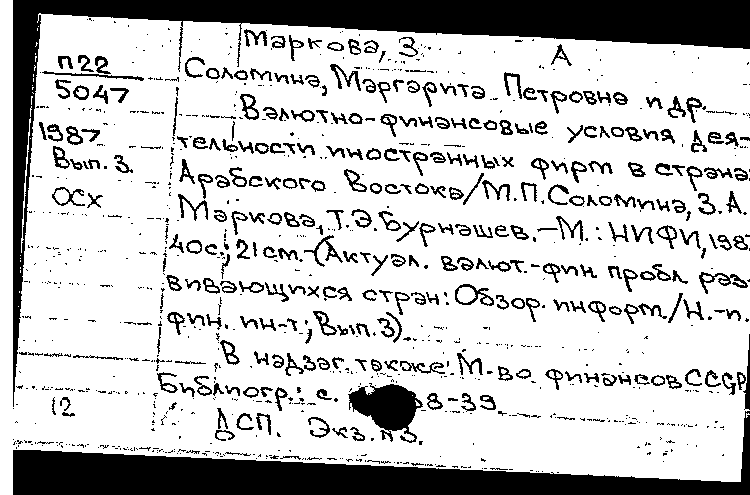 Маркова, З. А
П22
5047
Соломина, Маргарита Петровна и др.
Валютно-финансовые условия дея-
1987
Вып. 3.
тельности иностранных фирм в страна
ОСХ
Арабского Востока/М.П.Соломина, З.А.
Маркова, Т.Э.Бурнашев.-М.: НИФИ, 198
40с.; 21см.-(Актуал. валют.-фин пробл. раз-
вивающихся стран: Обзор. информ./Н.-и.
фин. ин-т; Вып.3).
В надзаг. также: М-во финансов СССР
Библиогр.: с. 38-39.
12
ДСП. Экз.№3.